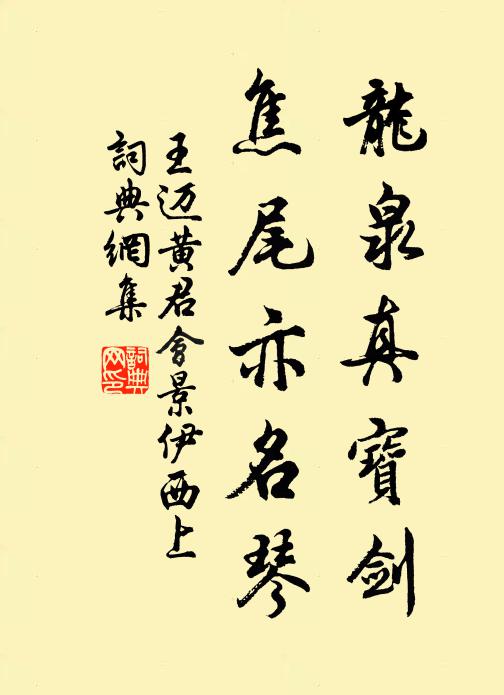 龍泉真寶劍
焦尾亦名琴
王迈黄君會景伊西上
詞典網集
詞典网印